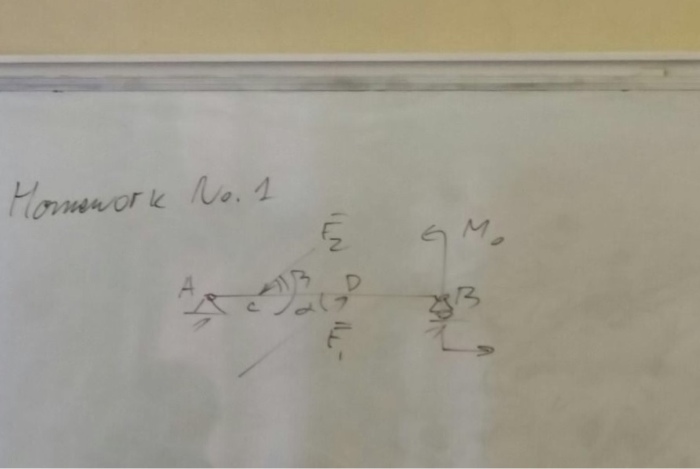 Homework No. 1
F₂ M₀
A C β α D B
F₁